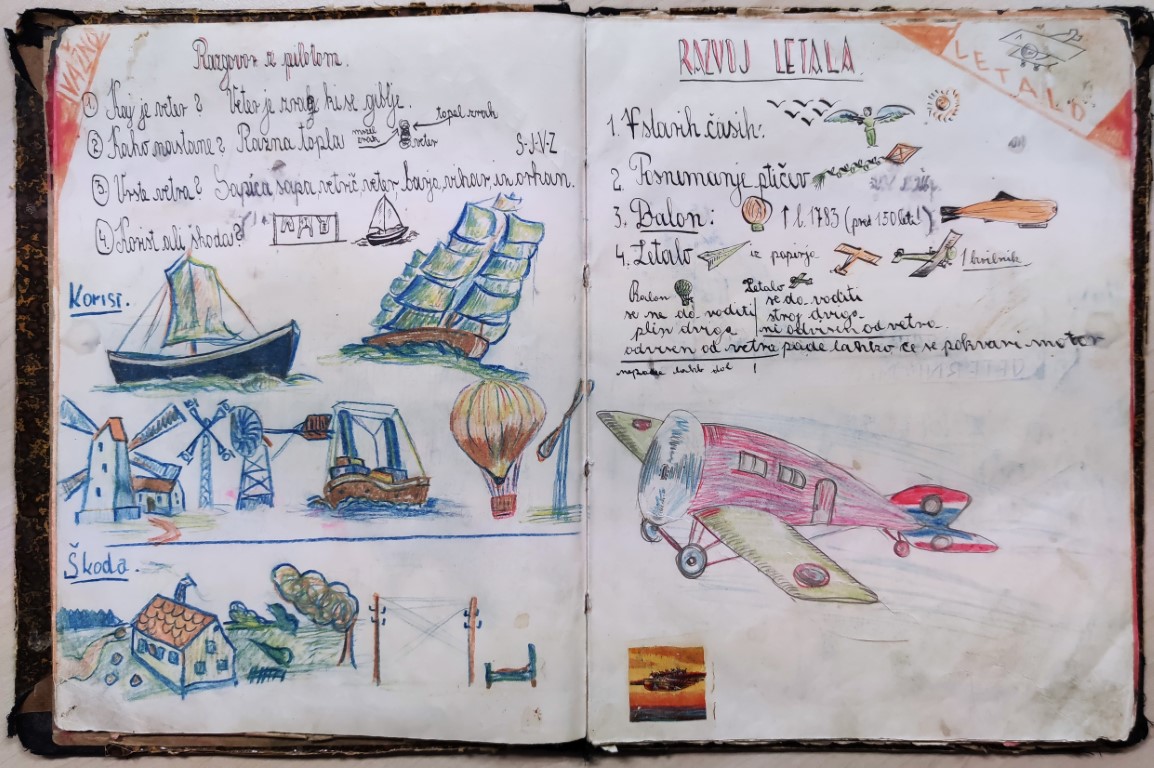 VAŽNO
Razgovor s pilotom.
① Kaj je veter? Veter je zrak ki se giblje.
topel zrak
② Kako nastane? Razna topla mrzli zrak veter S-J-V-Z
③ Vrste vetra? Sapica, sapa, vetrič, veter burja, vihar, in orkan.
④ Korist ali škoda?
Korist.
Škoda.
RAZVOJ LETALA
LETALO
1. V starih časih:
2. Posnemanje ptičev
3. Balon: ↑ l. 1783 (pred 150 leti!)
4. Letalo iz papirja 1 krilnik
Balon Letalo
se ne da voditi se da voditi
plin dviga stroj dviga
ni odvisen od vetra
odvisen od vetra pade lahko če se pokvari motor
lahko dol